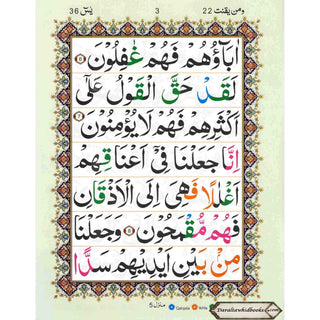 يٰسٓ 36 3 ومن يقنت 22
اٰبَآؤُهُمْ فَهُمْ غٰفِلُوْنَ ۝٦
لَقَدْ حَقَّ الْقَوْلُ عَلٰٓى
اَكْثَرِهِمْ فَهُمْ لَا يُؤْمِنُوْنَ ۝٧
اِنَّا جَعَلْنَا فِيْٓ اَعْنَاقِهِمْ
اَغْلٰلًا فَهِيَ اِلَى الْاَذْقَانِ
فَهُمْ مُّقْمَحُوْنَ ۝٨ وَجَعَلْنَا
مِنْۢ بَيْنِ اَيْدِيْهِمْ سَدًّا
منزل 5
Qalqala
Daraltawhidbooks.com